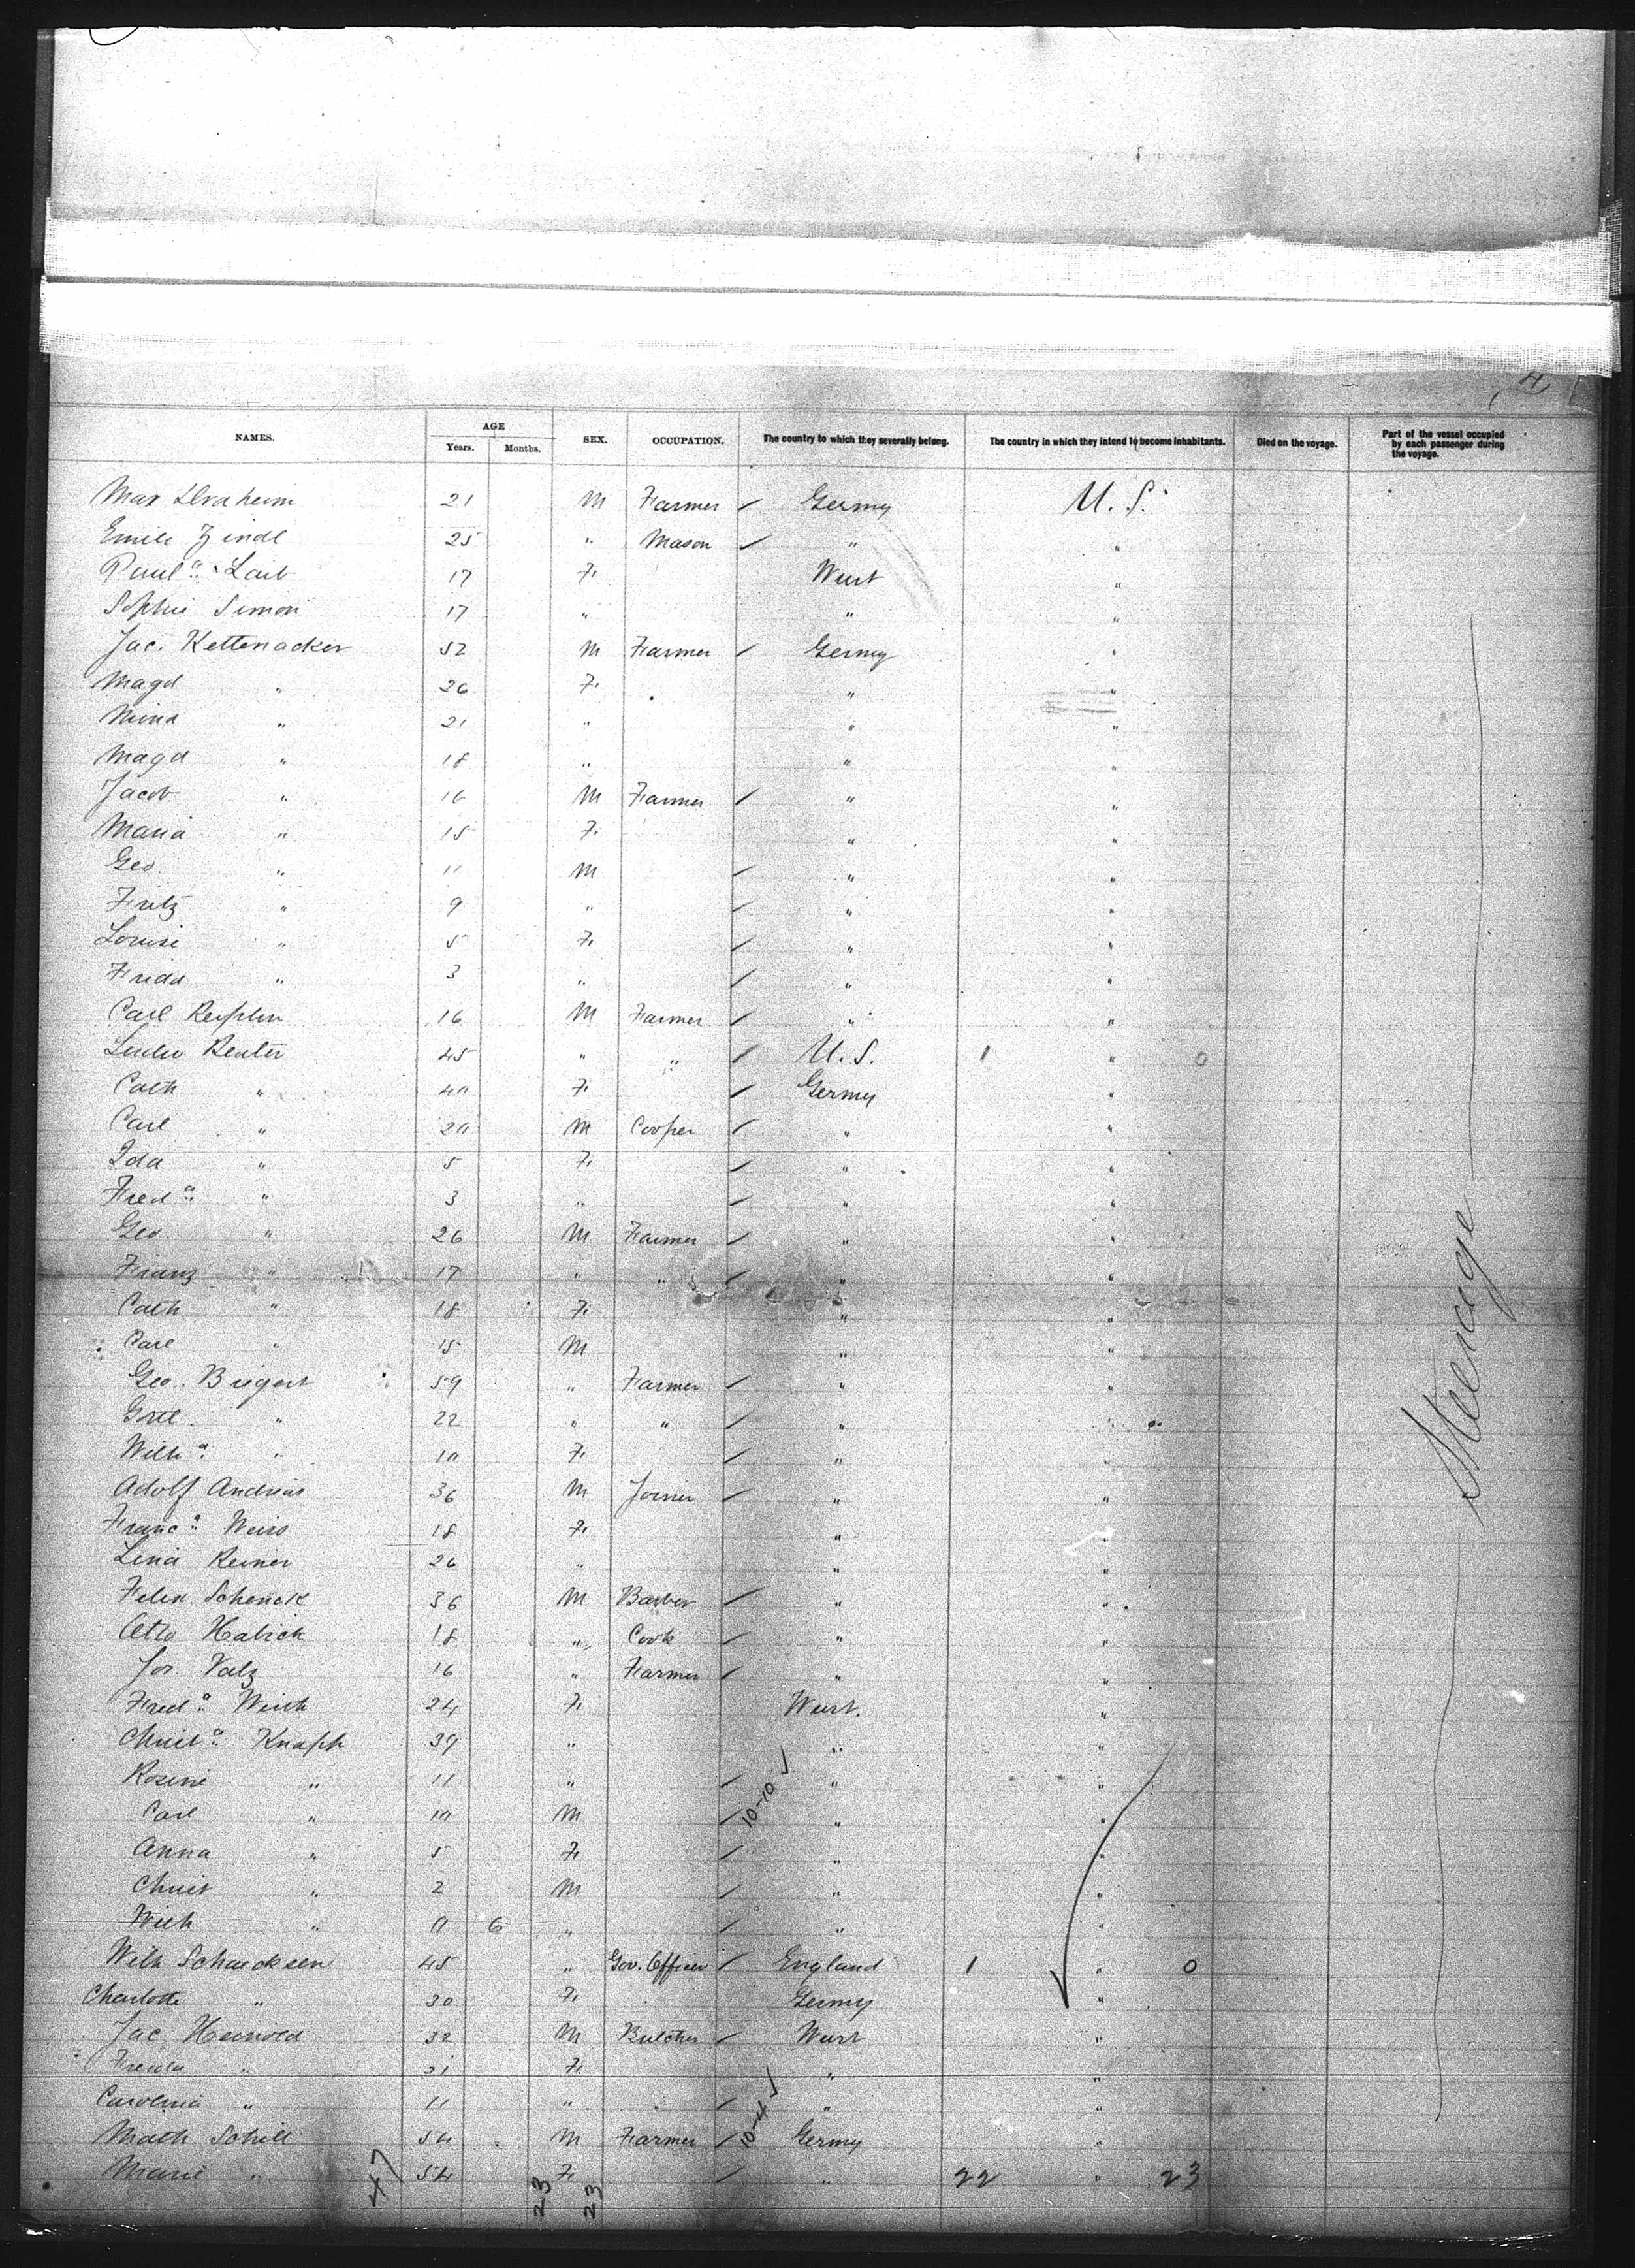 4
NAMES. AGE Years. Months. SEX. OCCUPATION. The country to which they severally belong. The country in which they intend to become inhabitants. Died on the voyage. Part of the vessel occupied by each passenger during the voyage.
Max 21 M Farmer / Germy U.S.
Emile Zindl 25 " Mason / " "
Paula Laib 17 F. Wurt "
Sophie Simon 17 " " "
Jac. Kettenacker 52 M Farmer / Germy "
Magd " 26 F. " "
Mina " 21 " " "
Magd " 18 " " "
Jacob " 16 M Farmer / " "
Maria " 15 F. " "
Geo. " 11 M / " "
Fritz " 9 " / " "
Louise " 5 F. / " "
Frida " 3 " / " "
Carl 16 M Farmer / " "
Reuter 45 " " / U.S. 1 " 0
Cath " 40 F. / Germy "
Carl " 20 M Cooper / " "
Ida " 5 F. / " "
Freda " 3 " / " "
Geo. " 26 M Farmer / " "
Franz " 17 " " / " "
Cath " 18 F. " "
Carl " 15 M " "
Geo. Biegert 59 " Farmer / " "
Gottl. " 22 " " / " "
Wilha " 10 F. / " "
Adolf Andreas 36 M Joiner / " "
Franca Weiss 18 F. " "
Lina Reiner 26 " " "
Felix Schenck 36 M Barber / " "
Otto Habich 18 " Cook / " "
Jos. Valz 16 " Farmer / " "
Freda Wirth 24 F. Wurt. "
Christa Knaph 39 " " "
Rosine " 11 " / " "
Carl " 10 M / 10-10 ✓ " "
Anna " 5 F. / " "
Christ " 2 M / " "
Wilh " 0 6 " / " "
Wilh Schaecksen 45 " Gov. Officer / England 1 " 0
Charlotte " 30 F. Germy "
Jac. Heinold 32 M Butcher / Wurt "
Freda " 31 F. " "
Carolina " 11 " / " "
Math Schill 54 M Farmer / 10-4 ✓ Germy "
Marie " 54 F. / " 22 " 23
47 23 23
Steerage